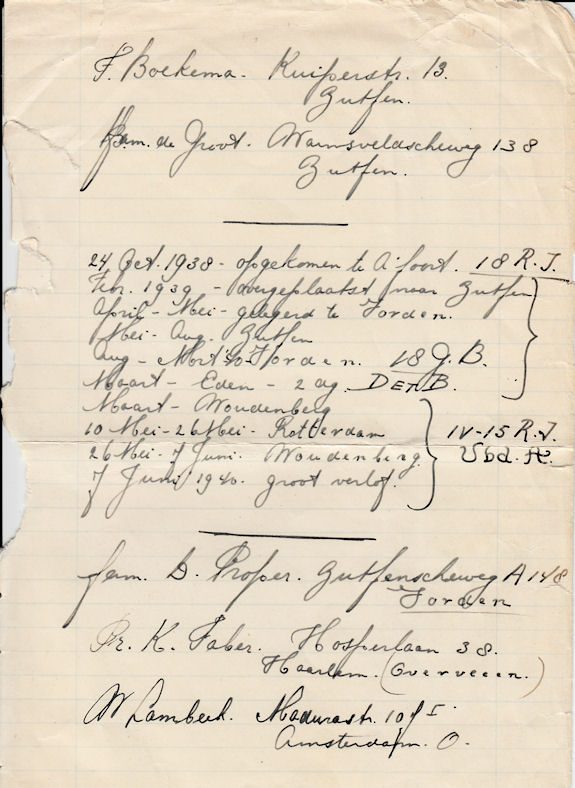 F. Boekema. Kuiperstr. 13.
Zutfen.
Fam. de Groot. Warnsveldscheweg 138
Zutfen.
24 Oct. 1938 - opgekomen te A'foort. 18 R.J.
Febr. 1939 - overgeplaatst naar Zutfen
April - Mei - gelegerd te Vorden.
Mei - Aug. Zutfen
Aug - Mrt '40 - Vorden. 18 G.B.
Maart - Eden - 2 dg. DET. B.
Maart - Woudenberg
10 Mei - 26 Mei - Rotterdam IV-15 R.J.
26 Mei - 7 Juni. Woudenberg. Vbd. A.
7 Juni 1940. groot verlof.
fam. D. Proper. Zutfenscheweg A 148
Vorden
Pr. K. Faber. Hosperlaan 38.
Haarlem. (Overveen.)
W Lambeek. Madurastr. 101 I
Amsterdam. O.